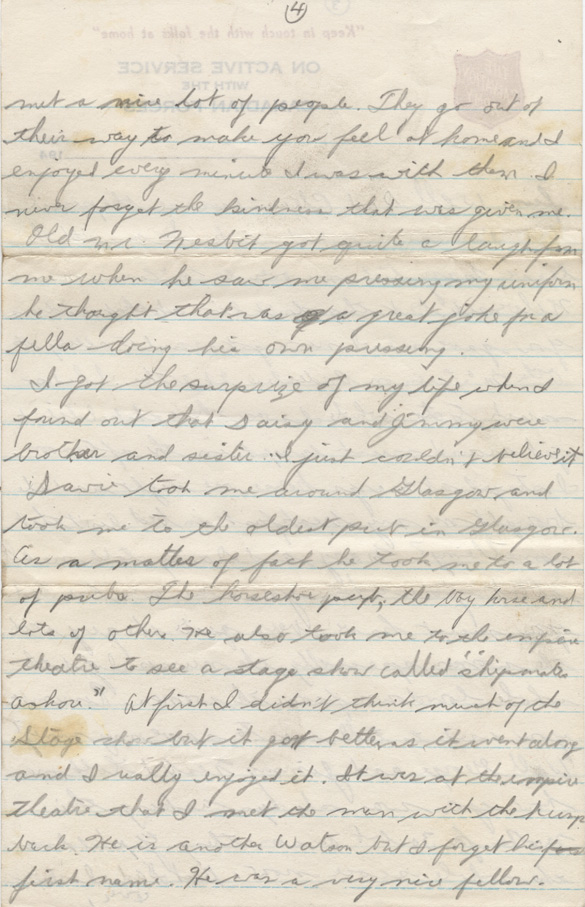 4
"Keep in touch with the folks at home"
ON ACTIVE SERVICE
WITH THE
CANADIAN FORCES
194
met a nice lot of people. They go out of
their way to make you feel at home and I
enjoyed every minute I was with them. I
never forget the kindness that was given me.
Old Mr. Nesbit got quite a laugh from
me when he saw me pressing my uniform
he thought that was a great joke for a
fella doing his own pressing.
I got the surprize of my life when I
found out that Daisy and Jimmy were
brother and sister. I just couldn't believe it
Davie took me around Glasgow and
took me to the oldest pub in Glasgow.
As a matter of fact he took me to a lot
of pubs. The horseshoe pub, the bay horse and
lots of others. He also took me to the empire
theatre to see a stage show called "shipmates
ashore." At first I didn't think much of the
stage show but it got better as it went along
and I really enjoyed it. It was at the empire
theatre that I met the man with the hump
back. He is another Watson but I forget his
first name. He was a very nice fellow.